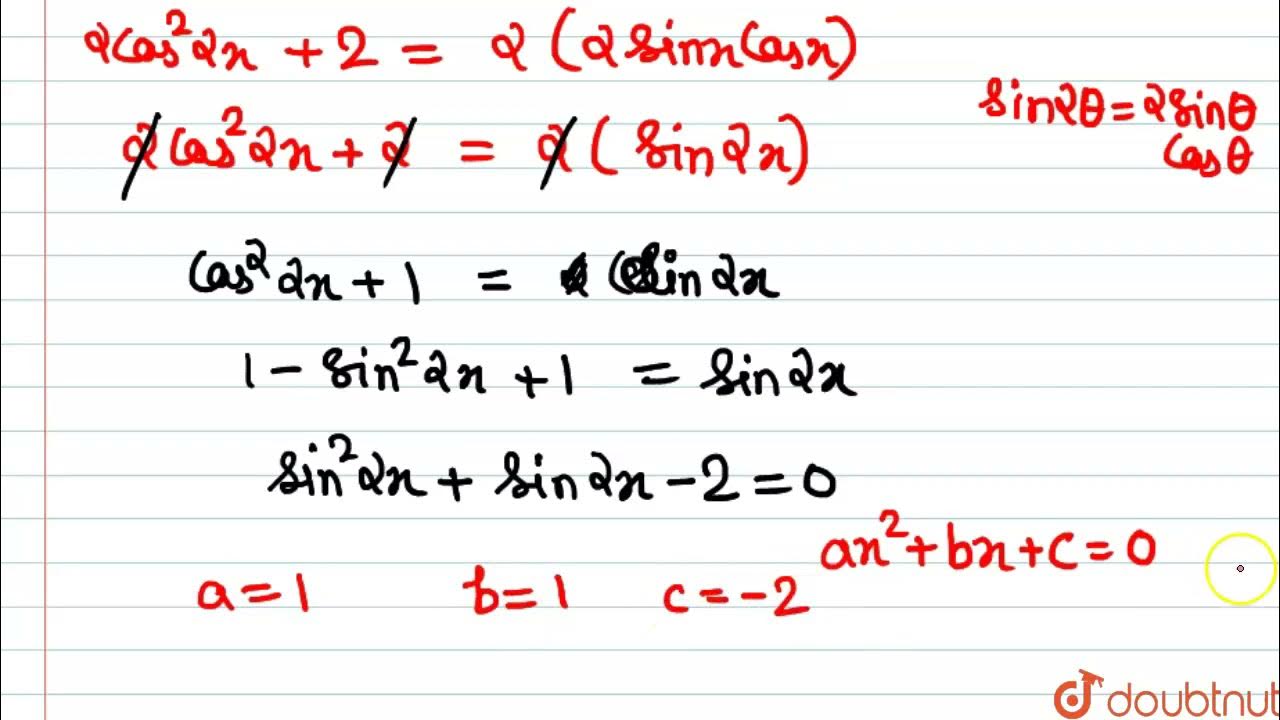 2cos²2x + 2 = 2(2sinxcosx)
sin2θ = 2sinθ
cosθ
2cos²2x + 2 = 2(sin2x)
cos²2x + 1 = sin2x
1 - sin²2x + 1 = sin2x
sin²2x + sin2x - 2 = 0
ax² + bx + c = 0
a = 1 b = 1 c = -2
doubtnut